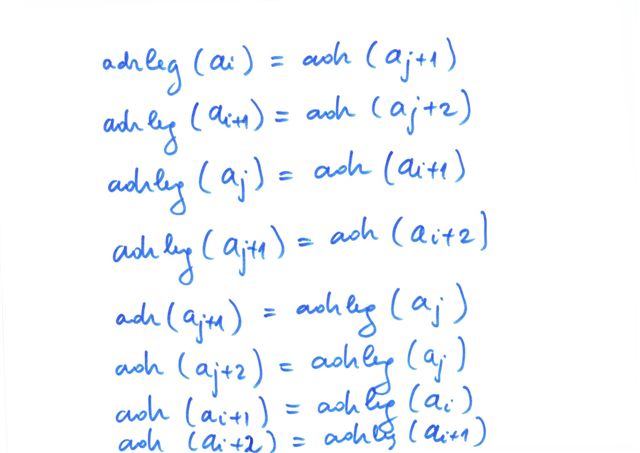 adrleg (ai) = adr (aj+1)
adrleg (ai+1) = adr (aj+2)
adrleg (aj) = adr (ai+1)
adrleg (aj+1) = adr (ai+2)
adr (aj+1) = adrleg (aj)
adr (aj+2) = adrleg (aj)
adr (ai+1) = adrleg (ai)
adr (ai+2) = adrleg (ai+1)